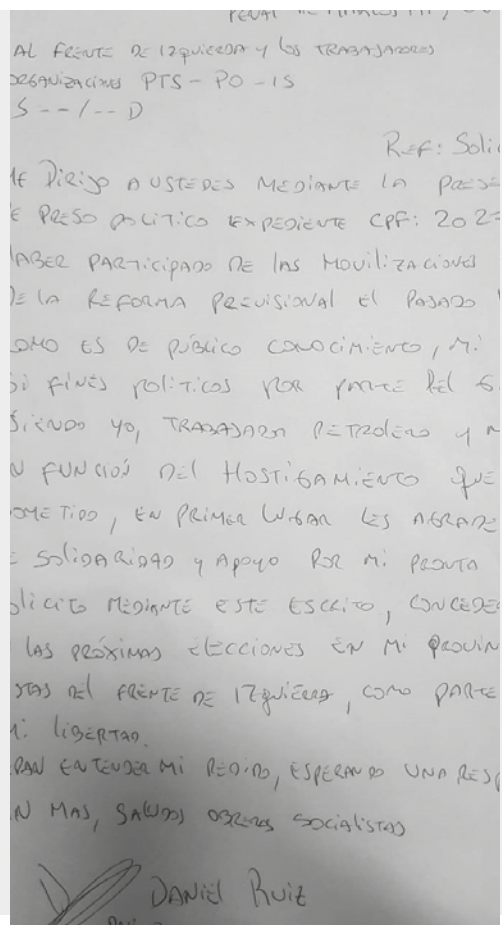 PENAL DE MARCOS PAZ, 
AL FRENTE DE IZQUIERDA Y LOS TRABAJADORES
ORGANIZACIONES PTS - PO - IS
S - - / - - D
REF: Soli
ME DIRIJO A USTEDES MEDIANTE LA PRESE
E PRESO POLITICO EXPEDIENTE CPF: 202
HABER PARTICIPADO DE LAS MOVILIZACIONES
DE LA REFORMA PREVISIONAL EL PASADO
OMO ES DE PÚBLICO CONOCIMIENTO, MI
FINES POLITICOS POR PARTE DEL G
SIENDO YO, TRABAJADOR PETROLERO Y
N FUNCIÓN DEL HOSTIGAMIENTO QUE
OMETIDO, EN PRIMER LUGAR LES AGRADE
E SOLIDARIDAD Y APOYO POR MI PRONTA
OLICITO MEDIANTE ESTE ESCRITO, CONCEDE
LAS PRÓXIMAS ELECCIONES EN MI PROVIN
STAS DEL FRENTE DE IZQUIERDA, COMO PARTE
MI LIBERTAD.
PAN ENTENDER MI PEDIDO, ESPERANDO UNA RESP
N MAS, SALUDOS OBREROS SOCIALISTAS
DANIEL RUIZ